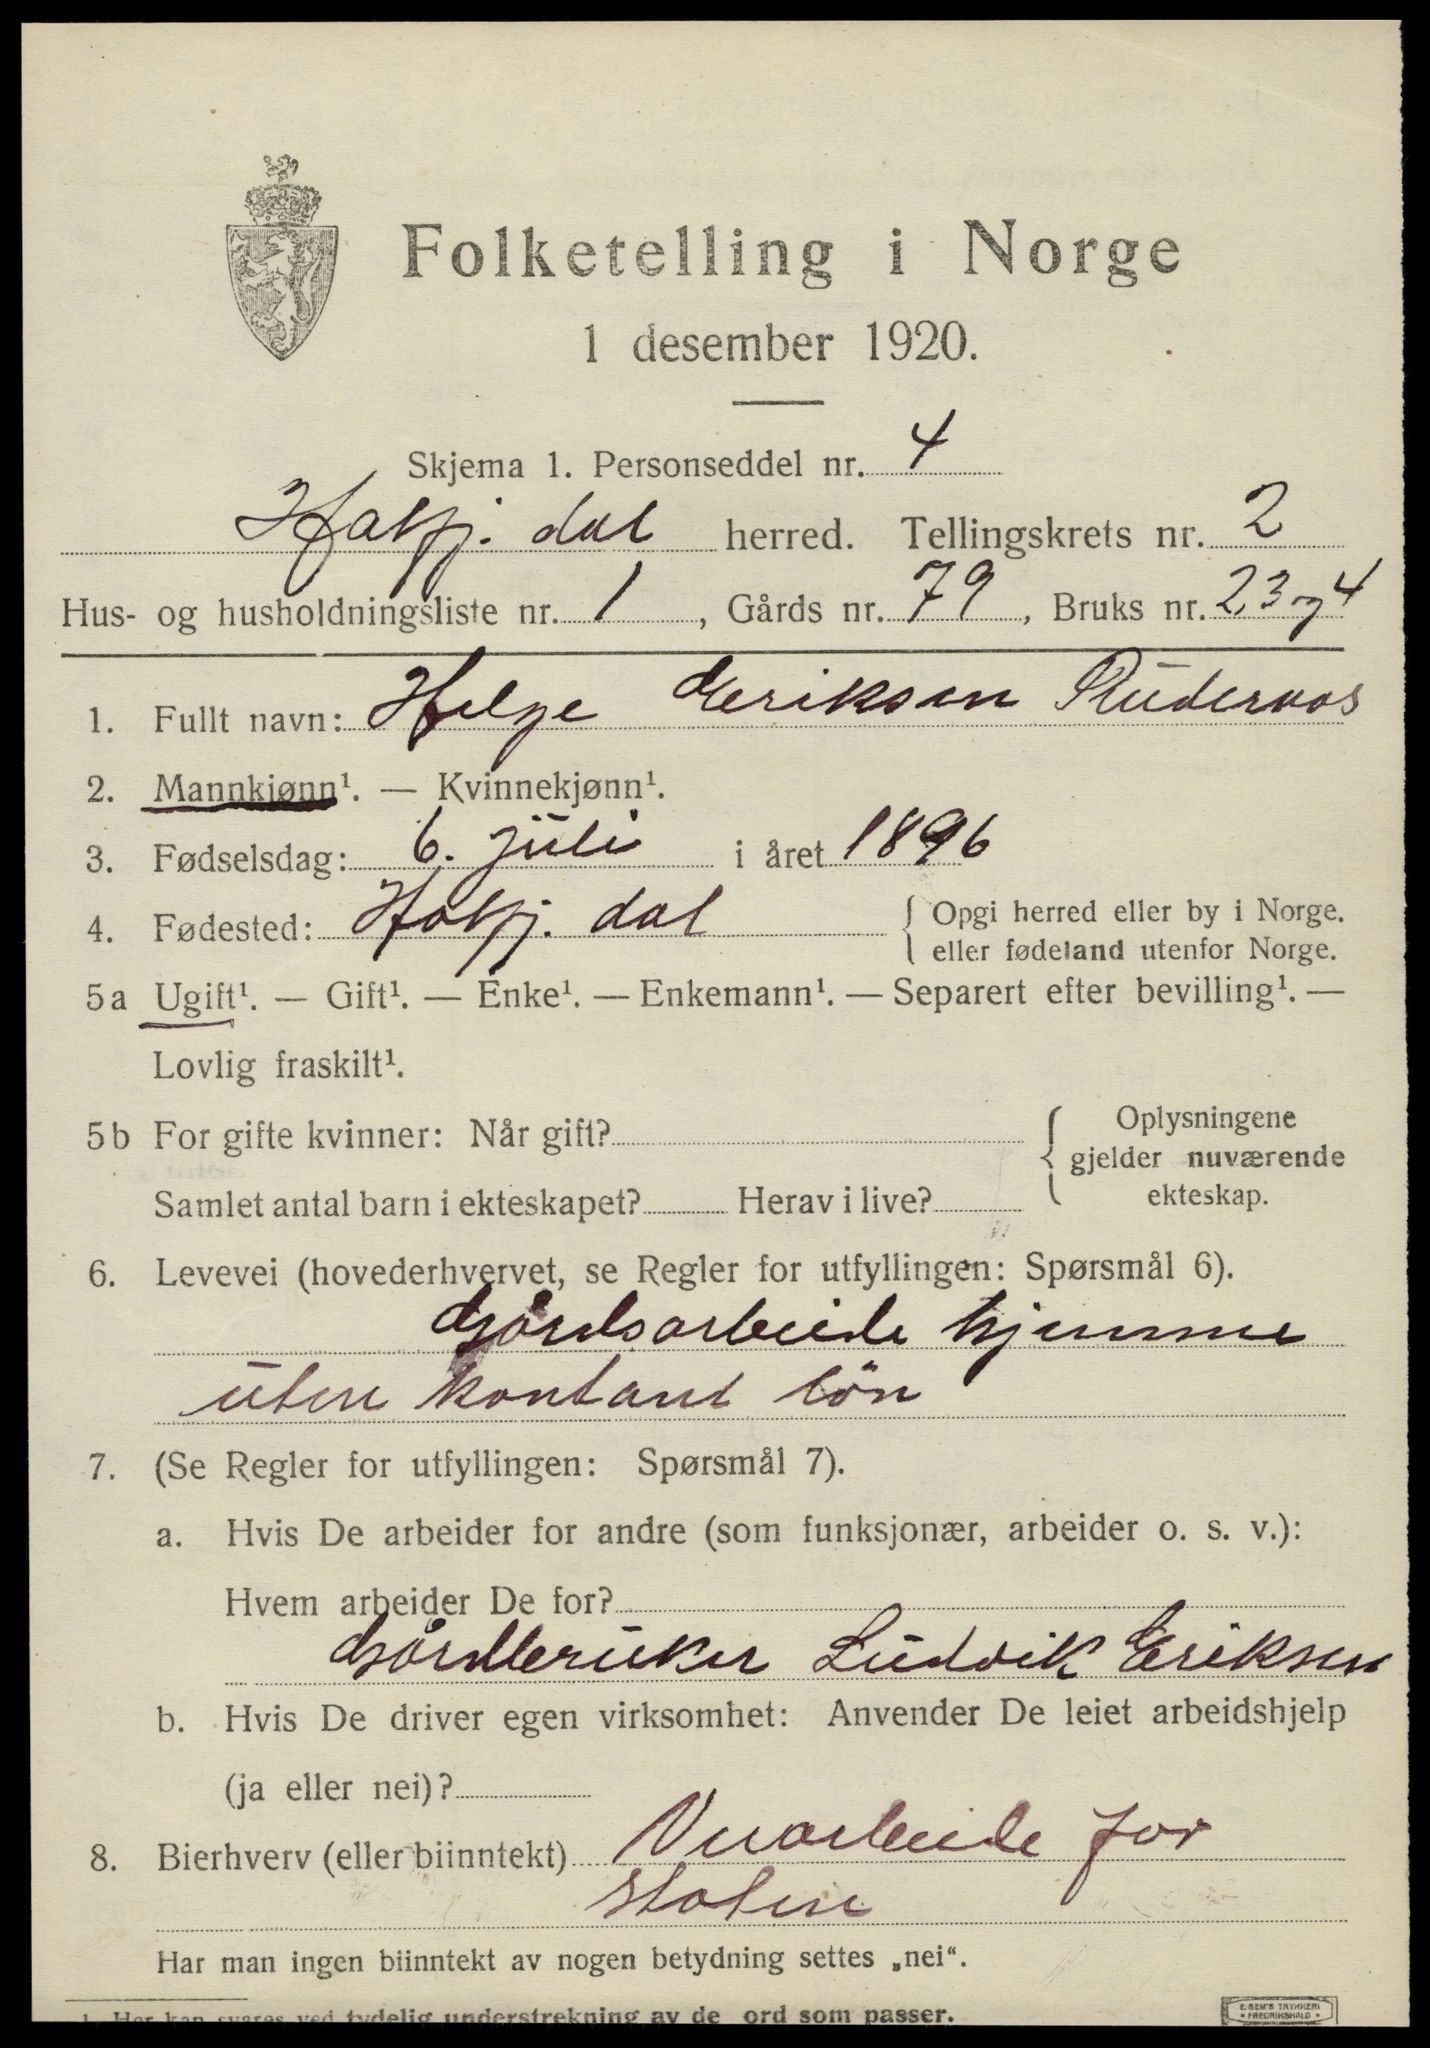 Folketelling i Norge
1 desember 1920.
Skjema 1. Personseddel nr. 4
Hattfj. dal herred. Tellingskrets nr. 2
Hus- og husholdningsliste nr. 1, Gårds nr. 79, Bruks nr. 2,3 og 4
1. Fullt navn: Helge Eriksen
2. Mannkjønn¹. — Kvinnekjønn¹.
3. Fødselsdag: 6. juli i året 1896
4. Fødested: Hattfj. dal { Opgi herred eller by i Norge.
eller fødeland utenfor Norge.
5a Ugift¹. — Gift¹. — Enke¹. — Enkemann¹. — Separert efter bevilling¹. —
Lovlig fraskilt¹.
5b For gifte kvinner: Når gift? { Oplysningene
gjelder nuværende
Samlet antal barn i ekteskapet? Herav i live? ekteskap.
6. Levevei (hovederhvervet, se Regler for utfyllingen: Spørsmål 6).
Gårdsarbeide hjemme
uten kontant løn
7. (Se Regler for utfyllingen: Spørsmål 7).
a. Hvis De arbeider for andre (som funksjonær, arbeider o. s. v.):
Hvem arbeider De for?
Gårdbruker Ludvik Eriksen
b. Hvis De driver egen virksomhet: Anvender De leiet arbeidshjelp
(ja eller nei)?
8. Bierhverv (eller biinntekt) Veiarbeide for
staten
Har man ingen biinntekt av nogen betydning settes „nei“.
1. Her kan svares ved tydelig understrekning av de ord som passer.
E. SEM'S TRYKKERI
FREDRIKSHALD